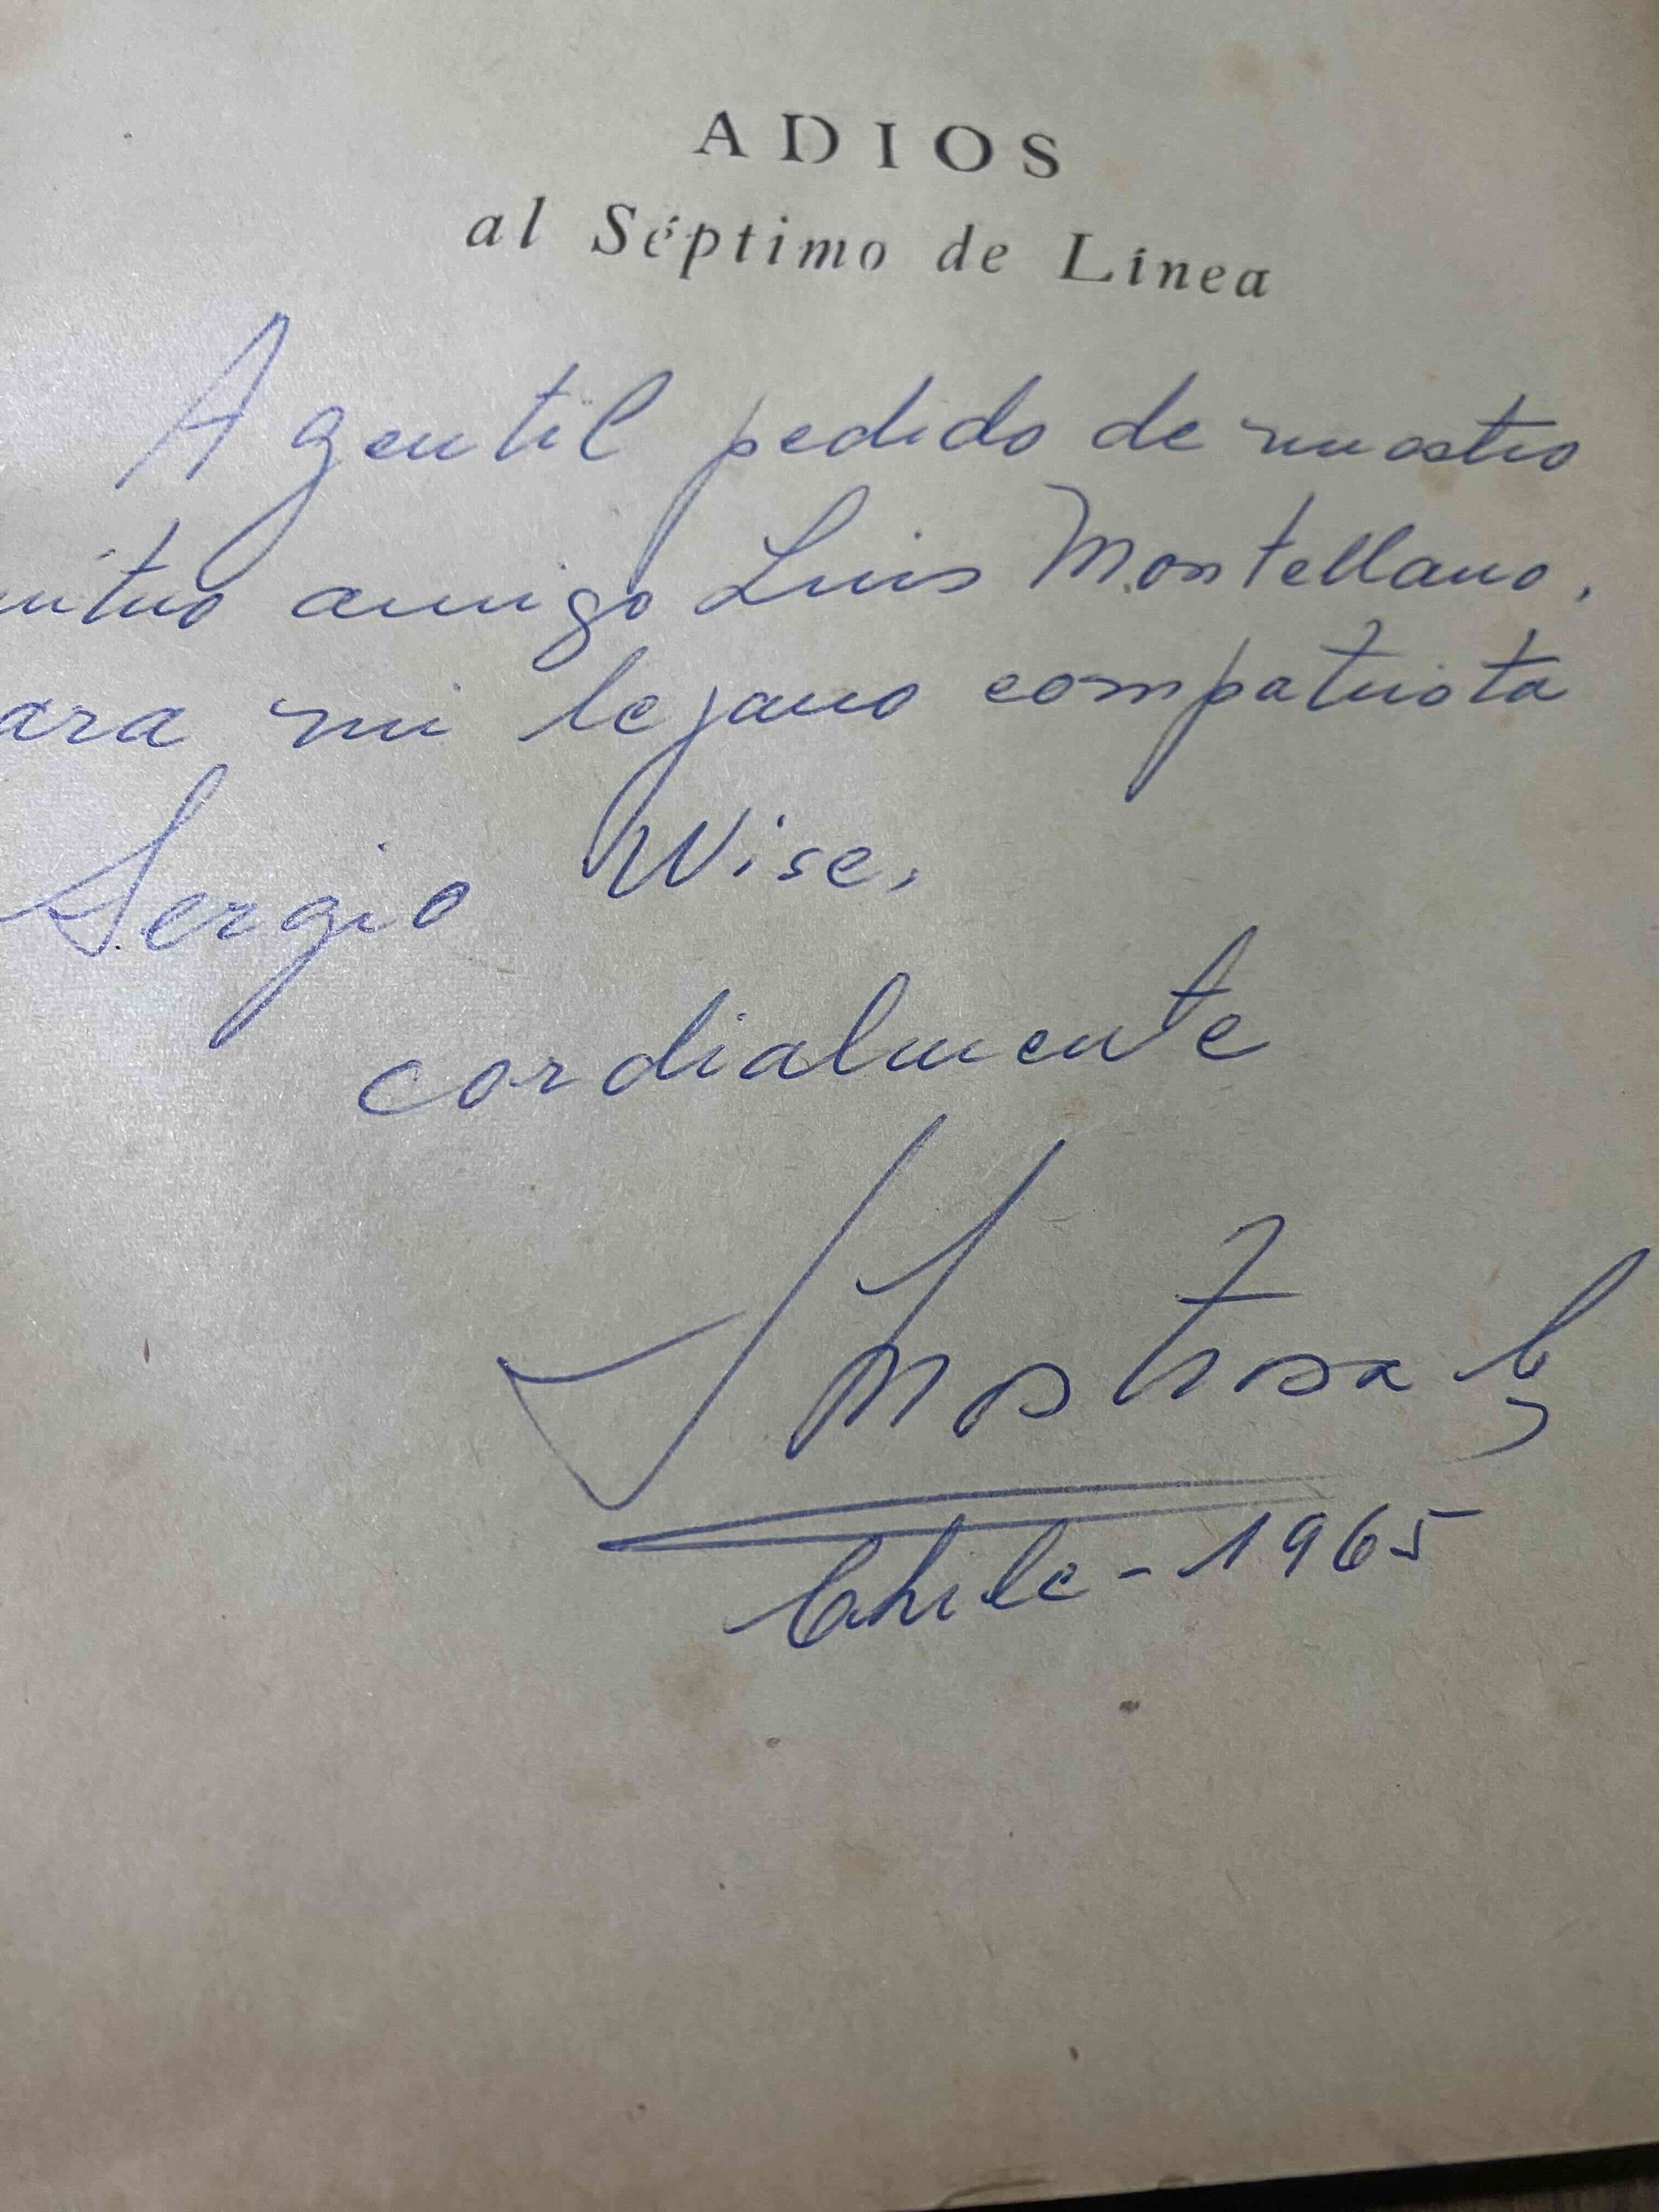 ADIOS
al Séptimo de Línea
A gentil pedido de nuestro
mutuo amigo Luis Montellano,
ara mi lejano compatriota
Sergio Wise,
cordialmente
Chile - 1965